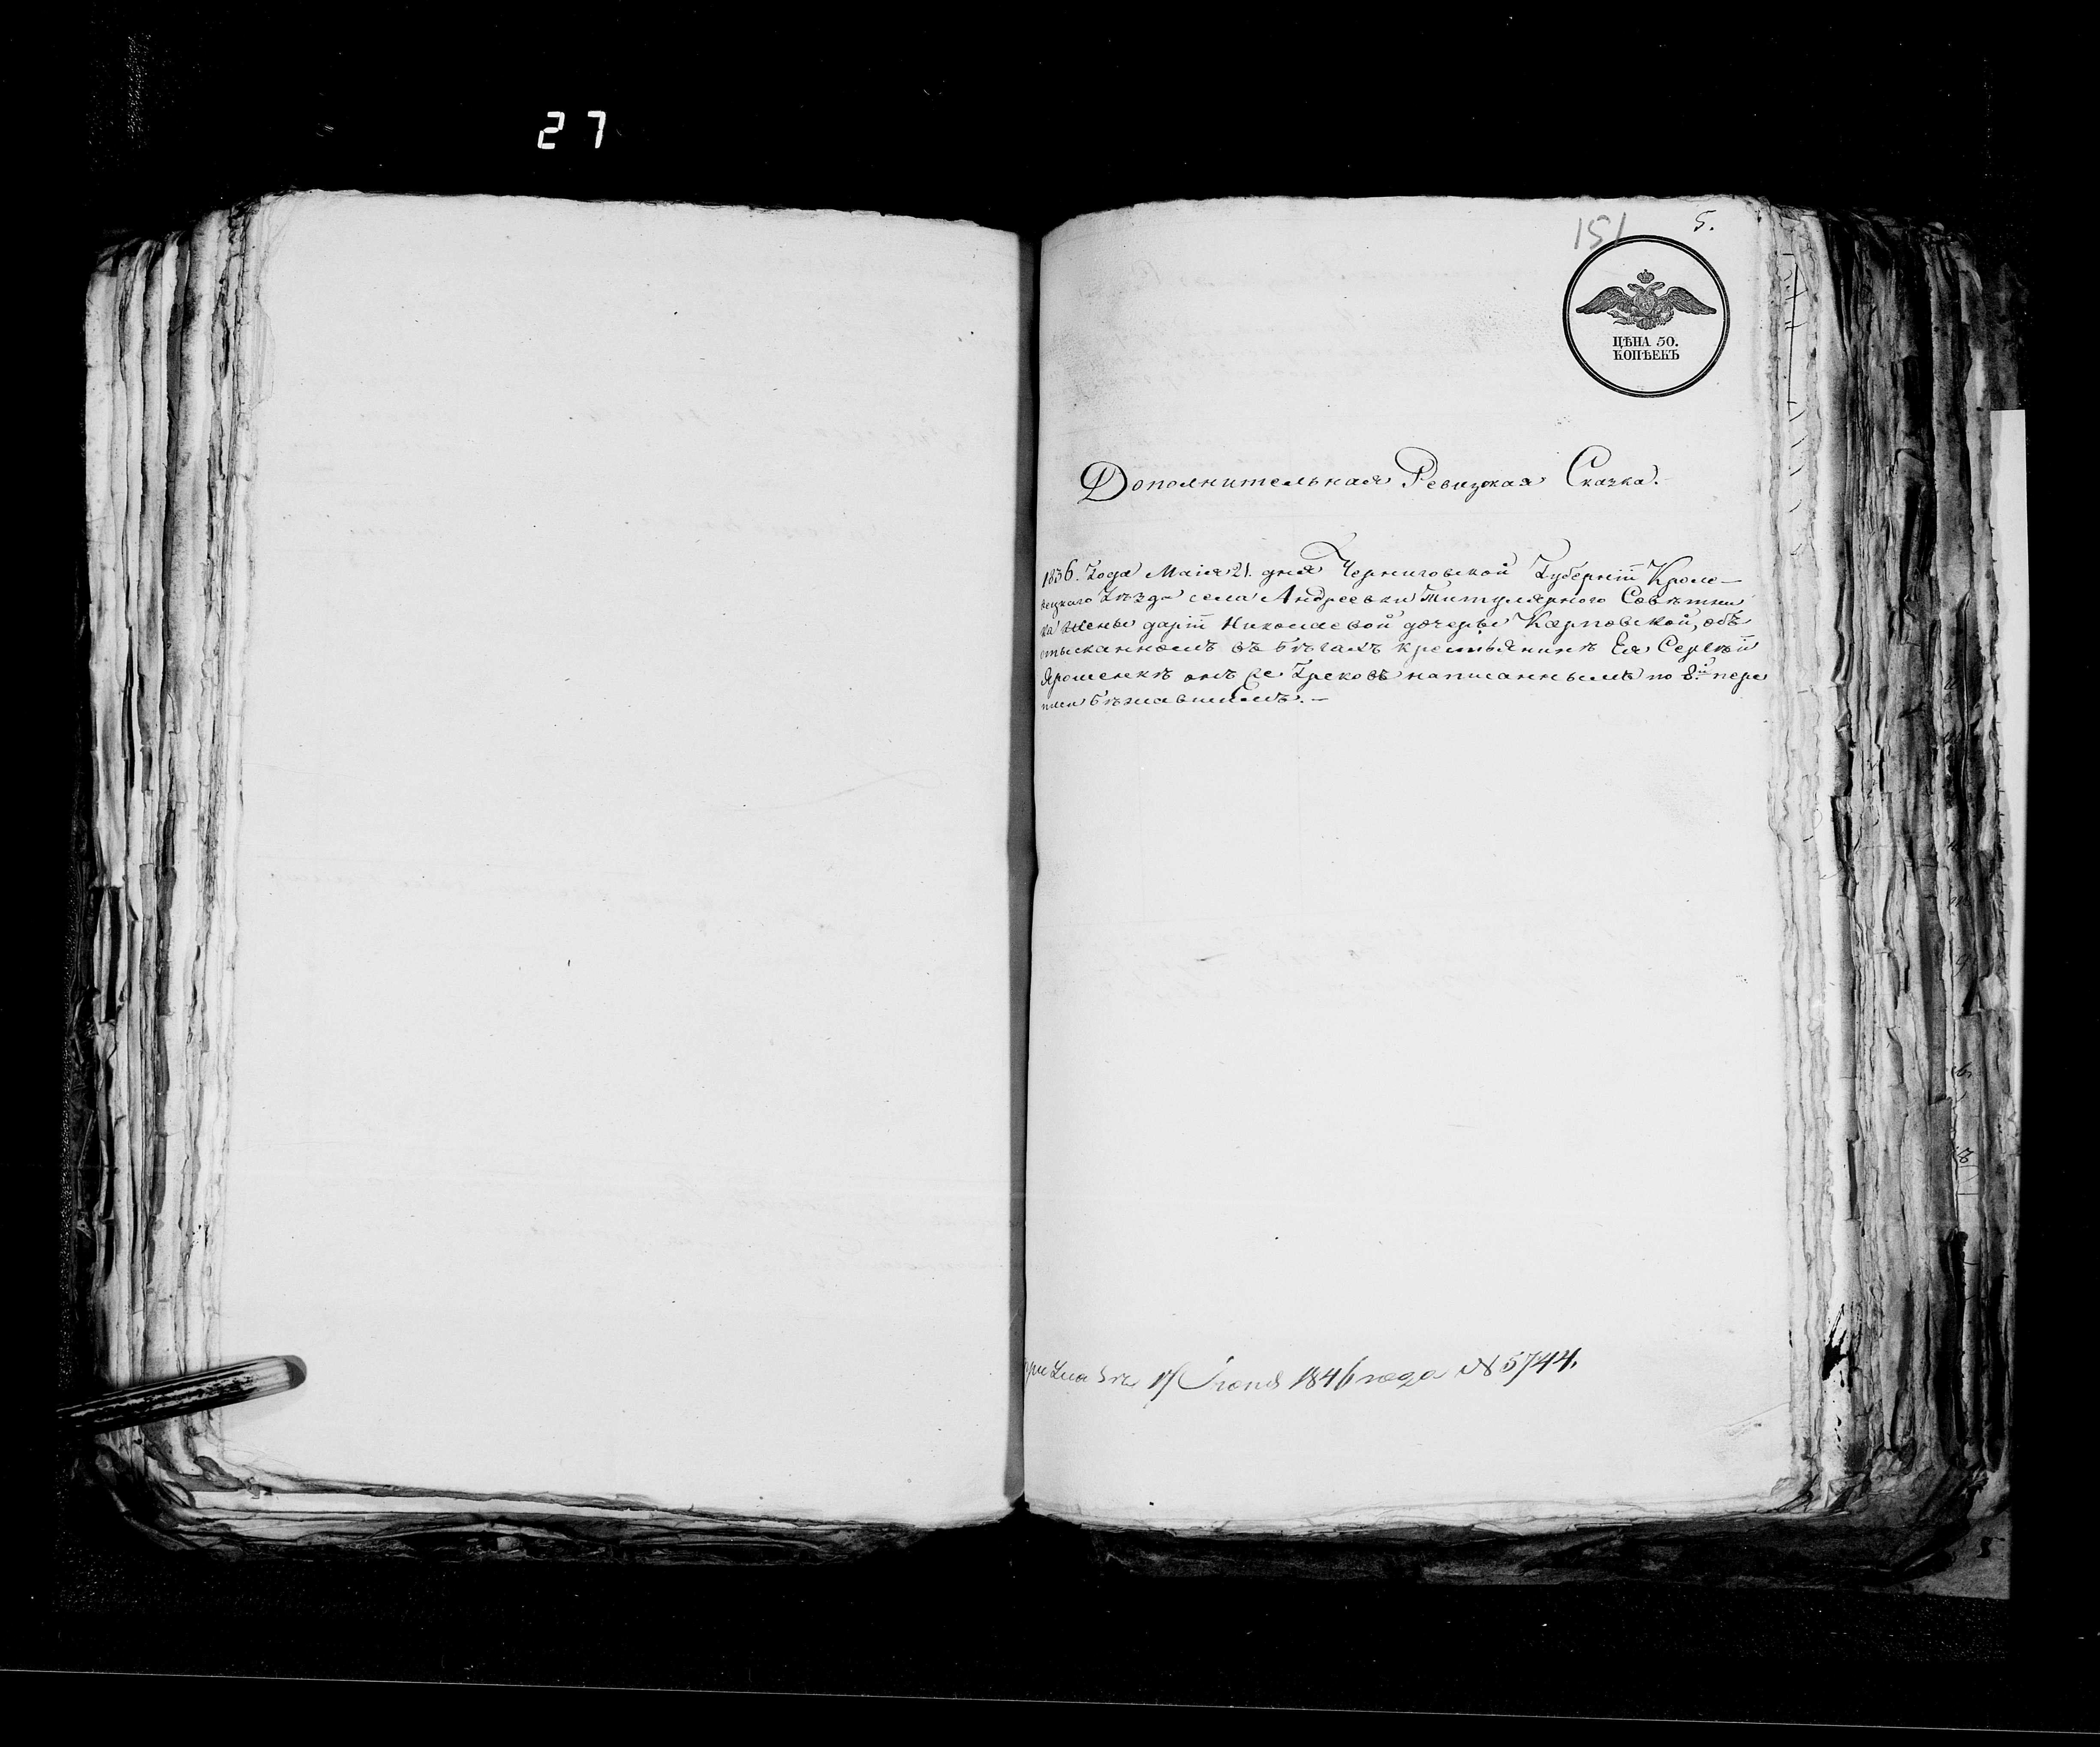 27
151 5.
ЦѢНА 50.
КОПѢЕКЪ
Дополнительная Ревизская Сказка.
1836. Года Маія 21. дня Черниговской Губерніи Кроле–
вецкаго Уѣзда села Андреевки Титулярного Совѣтни
ка жены Даріи Николаевой дочери Карповской, объ
отысканномъ въ бѣгахъ крестьянинѣ Ея Сергѣи
Ярошенкѣ онъ же Грековъ написаннымъ по 8й. пере
писи бѣжавшимъ. –
17 Іюня 1846 года № 5744.